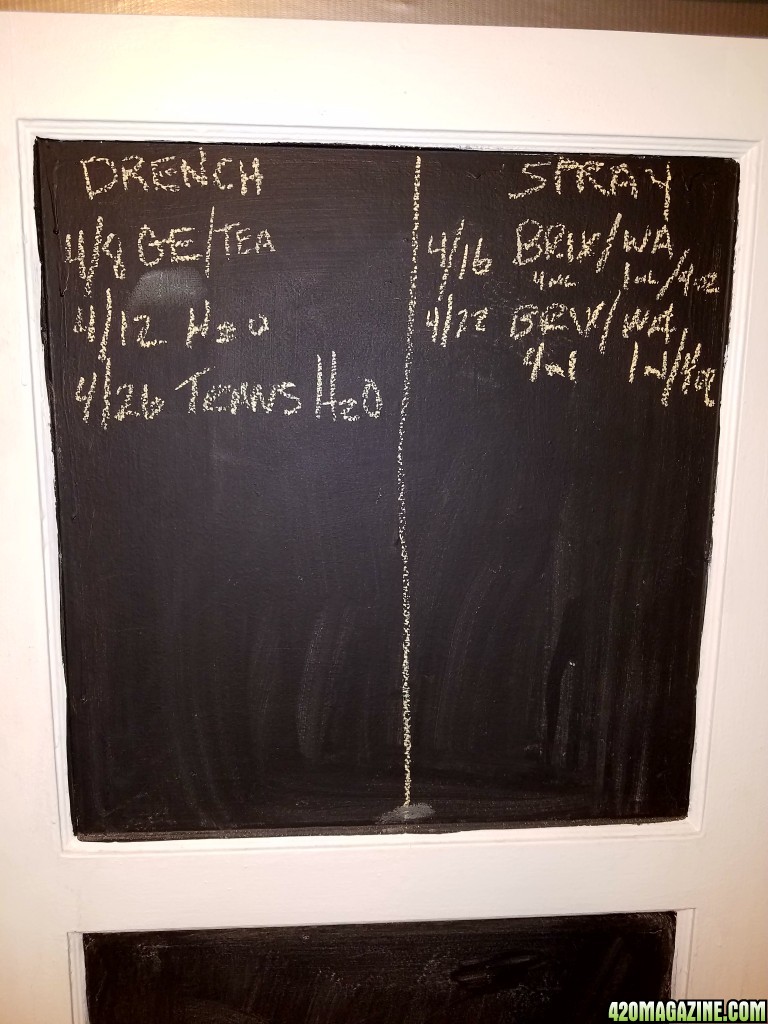 DRENCH
4/9 GE/TEA
4/12 H2O
4/26 H2O
SPRAY
4/16 BRIX/WA
4ml 1ml/4oz
4/22 BRIX/WA
4ml 1ml/4oz
420MAGAZINE.COM